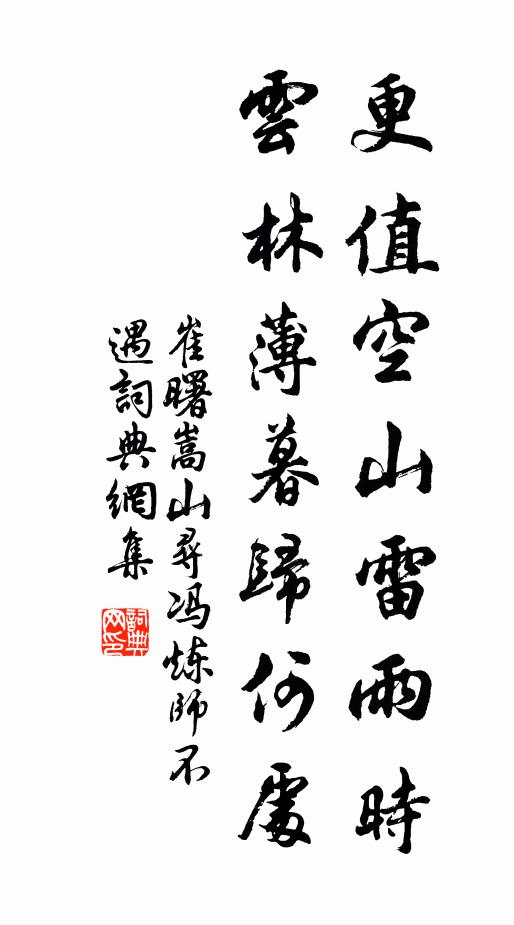 更值空山雷雨時
雲林薄暮歸何處
崔曙嵩山尋冯炼師不
遇詞典網集
詞典
网印